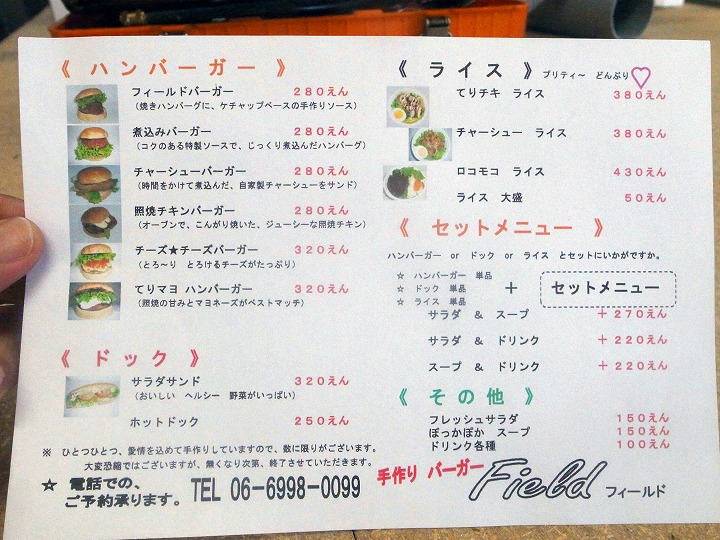 《 ハンバーガー 》
フィールドバーガー ２８０えん
（焼きハンバーグに、ケチャップベースの手作りソース）
煮込みバーガー ２８０えん
（コクのある特製ソースで、じっくり煮込んだハンバーグ）
チャーシューバーガー ２８０えん
（時間をかけて煮込んだ、自家製チャーシューをサンド）
照焼チキンバーガー ２８０えん
（オーブンで、こんがり焼いた、ジューシーな照焼チキン）
チーズ★チーズバーガー ３２０えん
（とろ～り とろけるチーズがたっぷり）
てりマヨ ハンバーガー ３２０えん
（照焼の甘みとマヨネーズがベストマッチ）
《 ドック 》
サラダサンド ３２０えん
（おいしい ヘルシー 野菜がいっぱい）
ホットドック ２５０えん
※ ひとつひとつ、愛情を込めて手作りしていますので、数に限りがございます。
大変恐縮ではございますが、無くなり次第、終了させていただきます。
☆ 電話での、
ご予約承ります。 TEL 06-6998-0099
《 ライス 》 プリティ～ どんぶり♡
てりチキ ライス ３８０えん
チャーシュー ライス ３８０えん
ロコモコ ライス ４３０えん
ライス 大盛 ５０えん
《 セットメニュー 》
ハンバーガー or ドック or ライス とセットにいかがですか。
☆ ハンバーガー 単品
☆ ドック 単品
☆ ライス 単品
＋ セットメニュー
サラダ ＆ スープ ＋２７０えん
サラダ ＆ ドリンク ＋２２０えん
スープ ＆ ドリンク ＋２２０えん
《 その他 》
フレッシュサラダ １５０えん
ぽっかぽか スープ １５０えん
ドリンク各種 １００えん
手作り バーガー Field フィールド